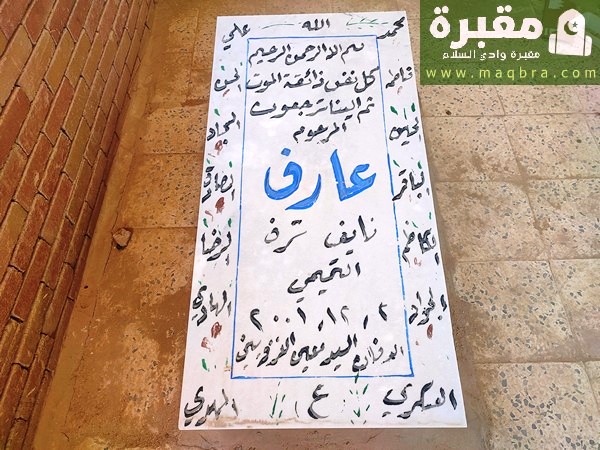 مقبرة
مقبرة وادي السلام
www.maqbra.com
محمد الله علي
بسم الله الرحمن الرحيم
كل نفس ذائقة الموت
ثم الينا ترجعون
المرحوم
عارف
نايف ترف
التميمي
٢٠٠١ / ١٢ / ٢
الدفان السيد معين الغزويني
فاطمة
الحسن
الحسين
السجاد
الباقر
الصادق
الكاظم
الرضا
الجواد
الهادي
العسكري ع المهدي